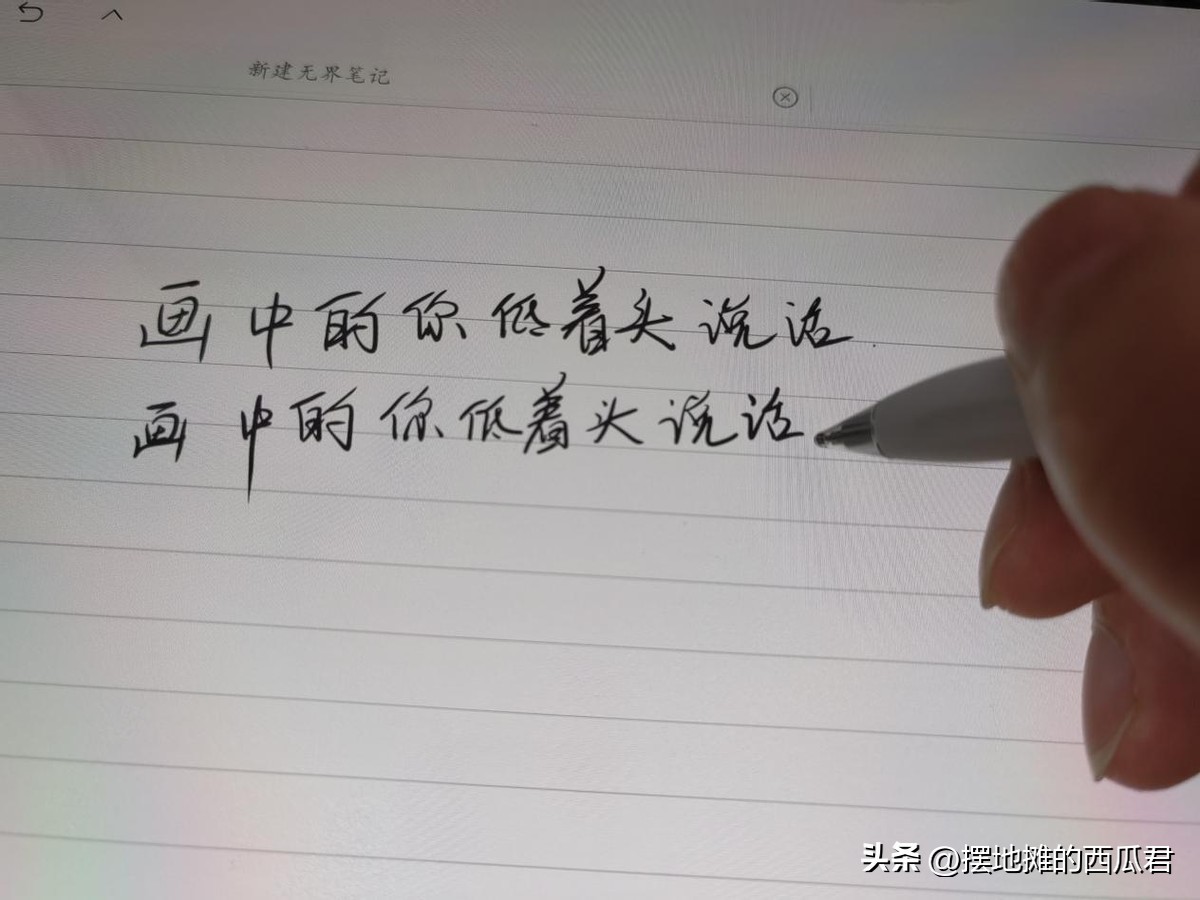 新建无界笔记
画中的你低着头说话
画中的你低着头说话
头条 @摆地摊的西瓜君